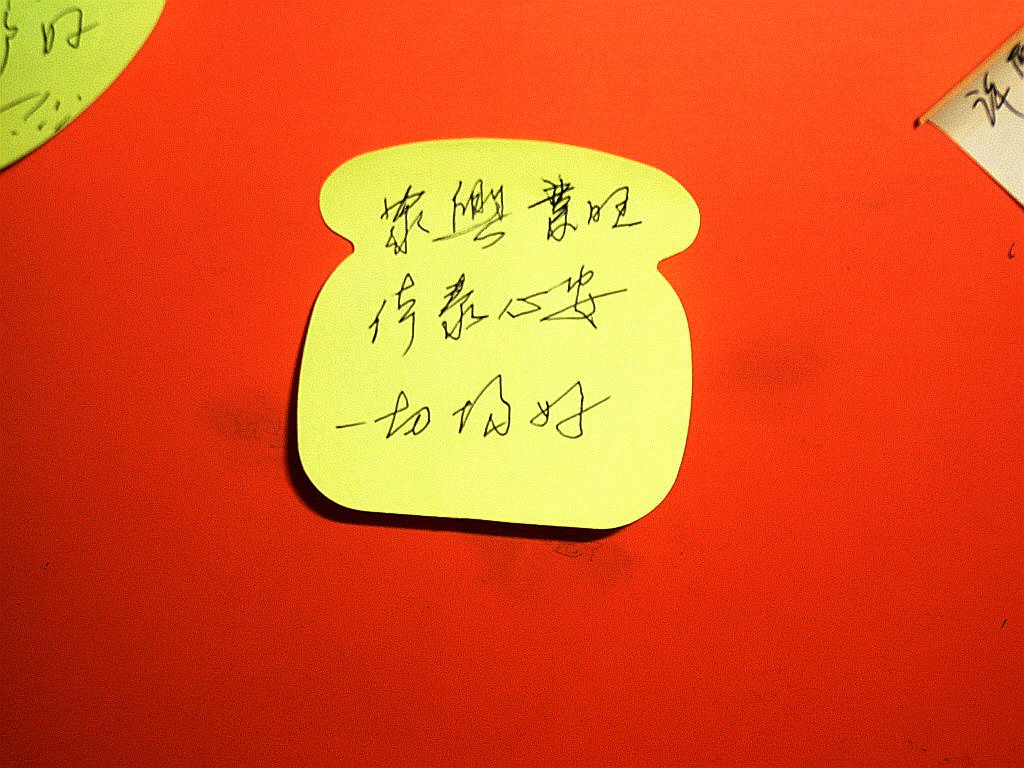 家興業旺
体泰心安
一切均好